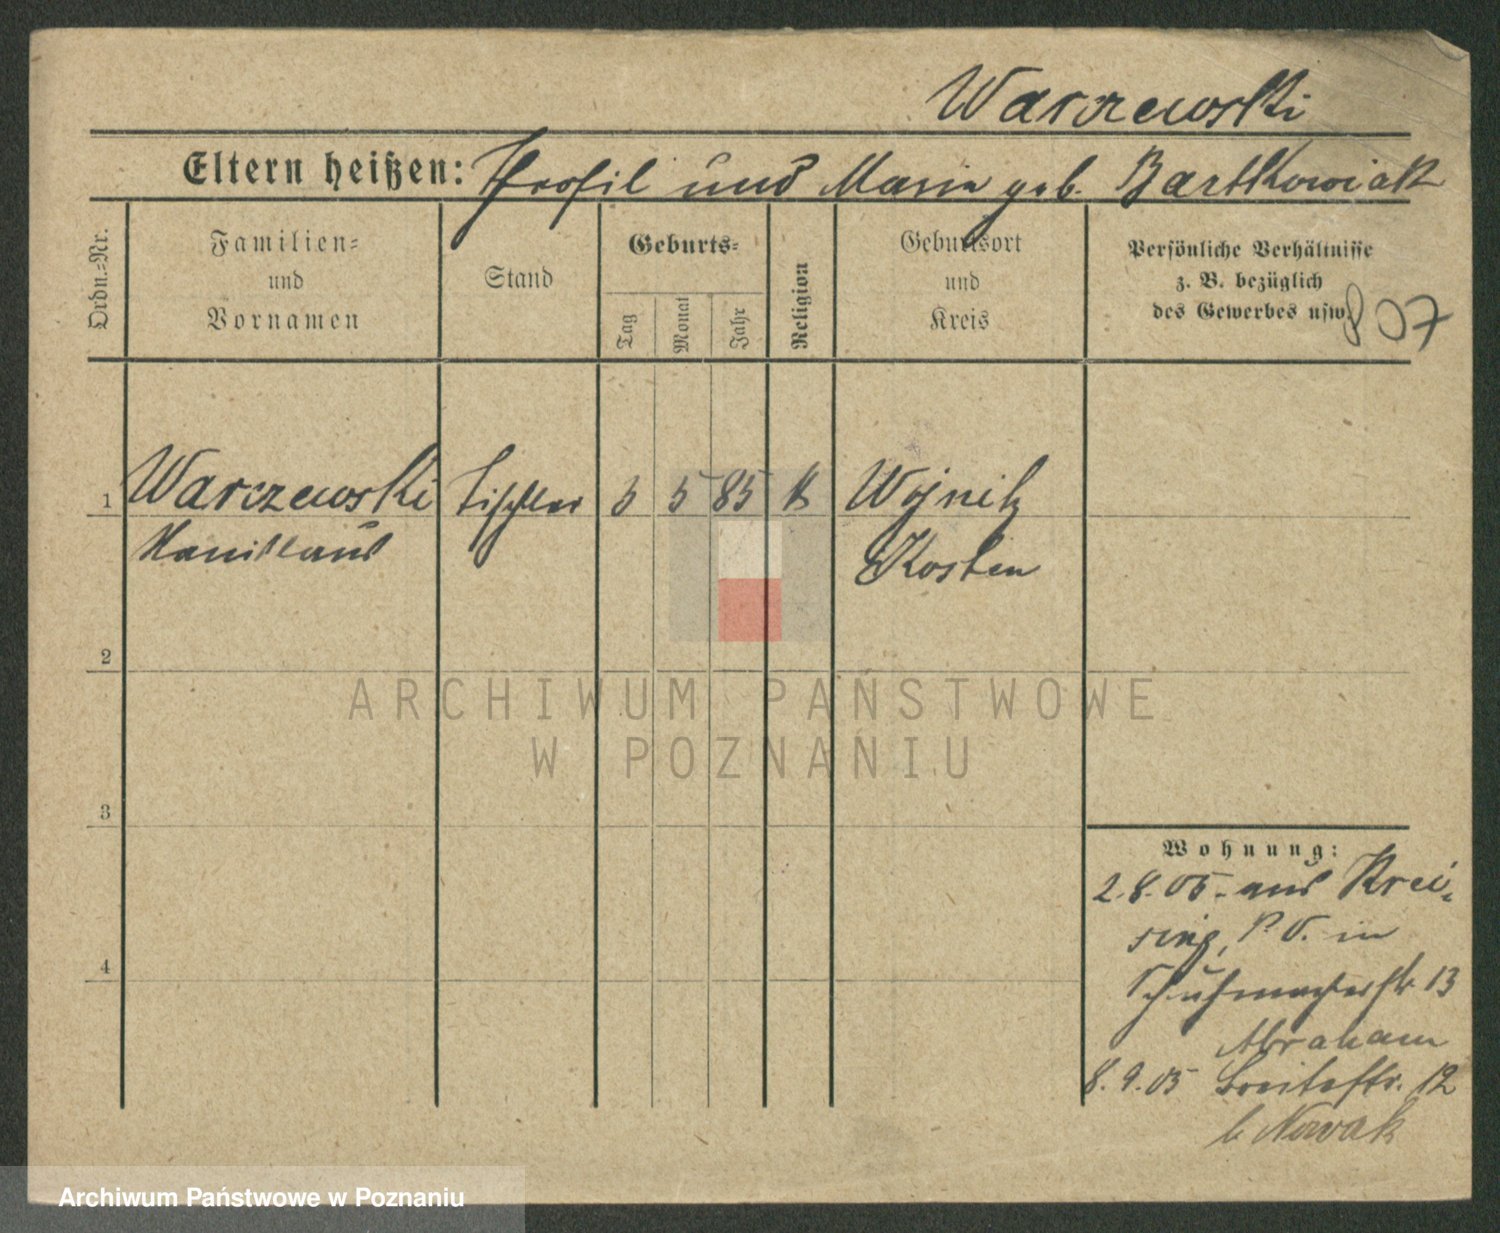 Warczewski
Eltern heißen: Throfil und Maria geb. Bartkowiak
Ordn.=Nr.
Familien=
und
Vornamen
Stand
Geburts=
Tag
Monat
Jahr
Religion
Geburtsort
und
Kreis
Persönliche Verhältnisse
z. B. bezüglich
des Gewerbes usw.
807
1 Warczewski Tischler 5 5 85 K Wojnitz
Stanislaus Kosten
2
3
4
ARCHIWUM PAŃSTWOWE
W POZNANIU
Wohnung:
2.8.05. aus Krei-
sing, P. O. in
Schuhmacherstr. 13
Abraham
8.9.05 Breitestr. 12
b Nowak
Archiwum Państwowe w Poznaniu